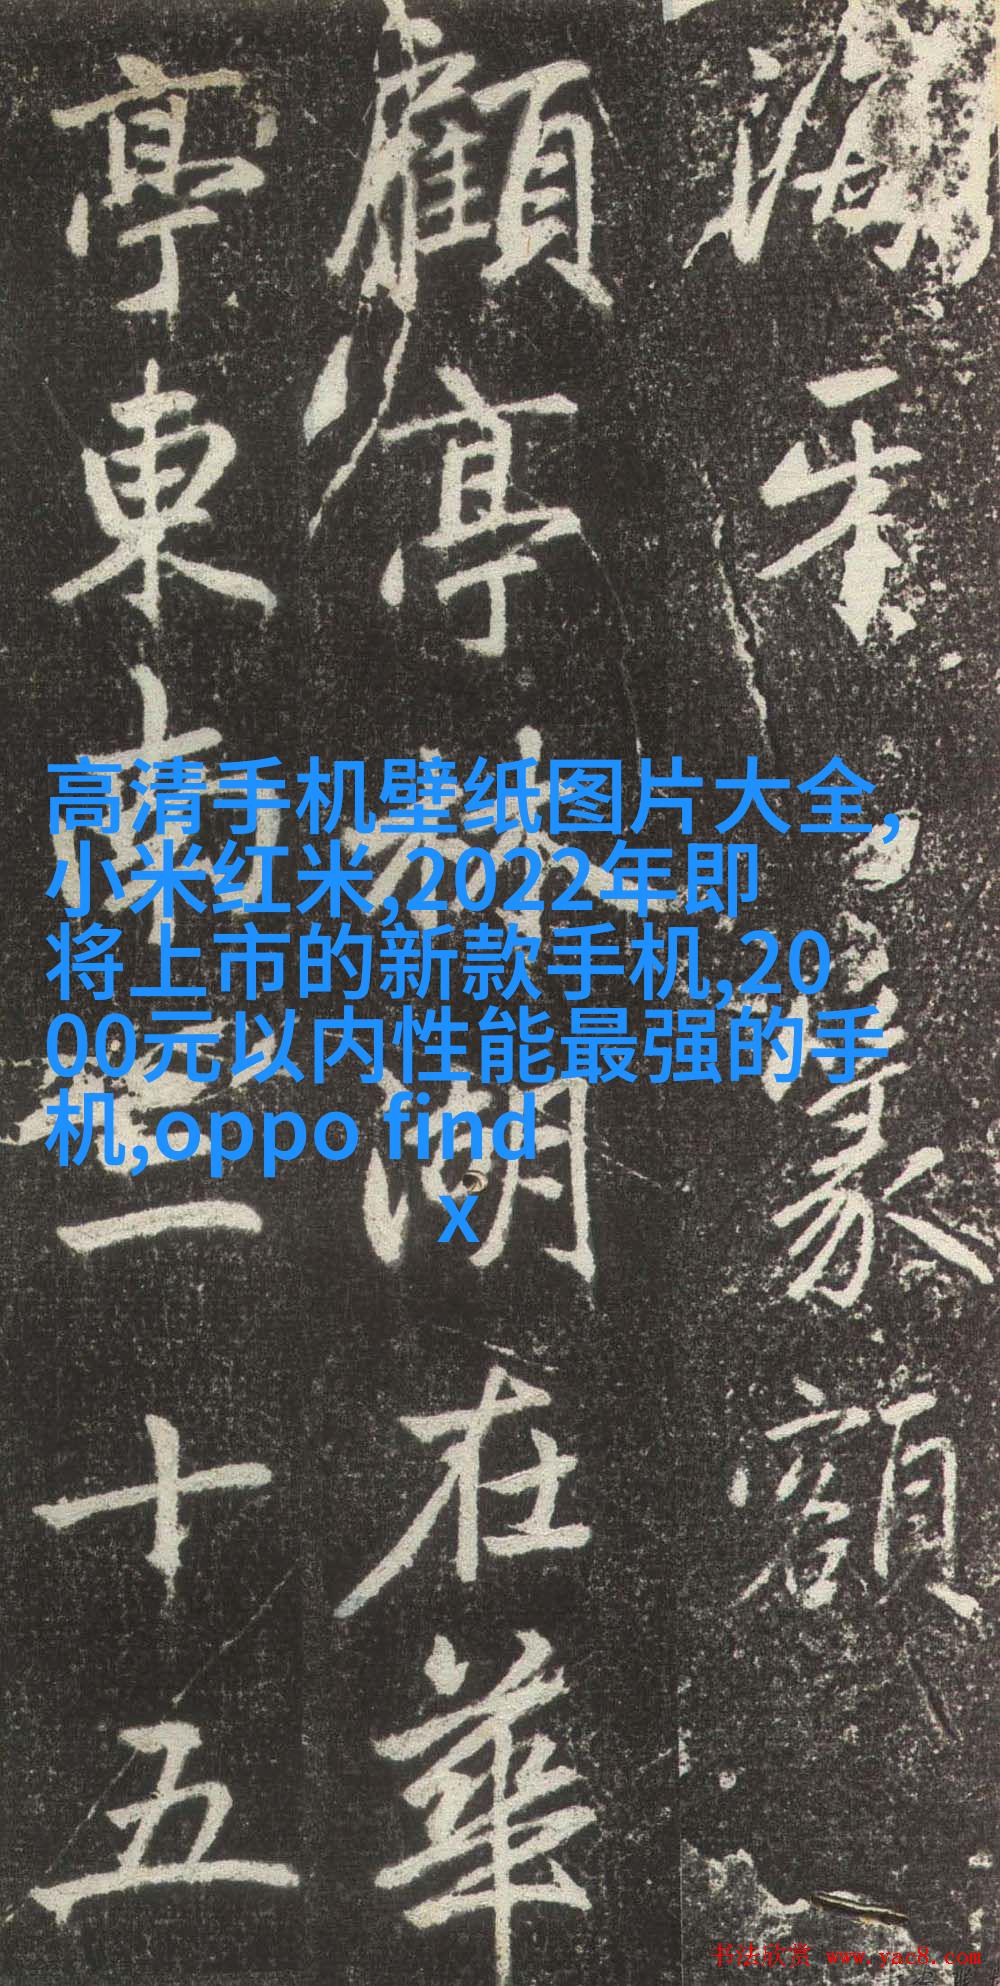 篆額
顧亭林湖在華
亭東南三十五
高清手机壁纸图片大全,
小米红米,2022年即
将上市的新款手机,20
00元以内性能最强的手
机,oppo find
x
书法欣赏 www.yac8.com